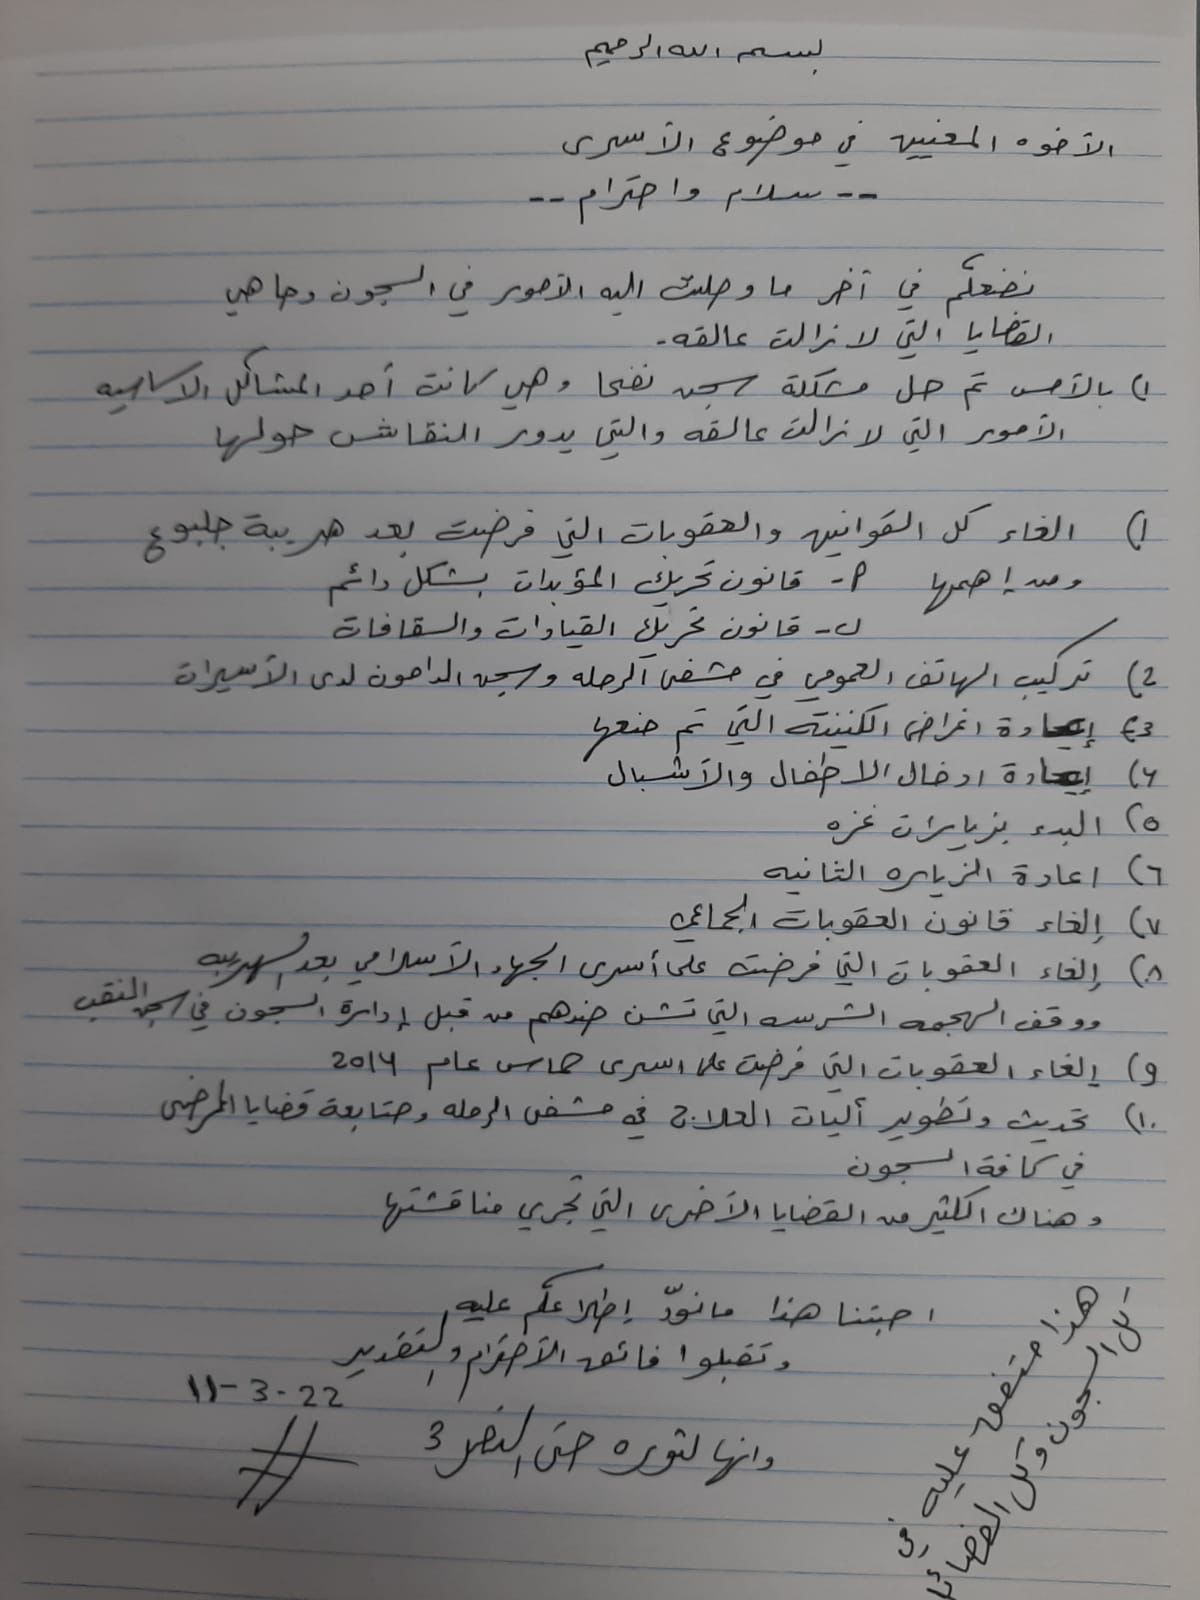 بسم الله الرحيم
الأخوه المعنيين في موضوع الأسرى
-- سلام واحترام --
نضعكم في آخر ما وصلت اليه الأمور في السجون وما هي
القضايا التي لا زالت عالقه.
١) بالأمس تم حل مشكلة سجن نفحا وهي كانت أحد المشاكل الاساسيه
الأمور التي لا زالت عالقه والتي يدور النقاش حولها
١) الغاء كل القوانين والعقوبات التي فرضت بعد هريبة جلبوع
ومن إهمها أ- قانون تحريك المؤبدات بشكل دائم
ب- قانون تحريك القيادات والسقافات
2) تركيب الهاتف العمومي في مشفى الرمله وسجن الدامون لدى الأسيرات
3) إعادة اغراض الكنتينه التي تم منعها
٤) إعادة ادخال الاطفال والأشبال
٥) البدء بزيارات غزه
٦) اعادة الزياره الثانيه
٧) إلغاء قانون العقوبات الجماعي
٨) إلغاء العقوبات التي فرضت على أسرى الجهاد الأسلامي بعد الهريبه
ووقف الهجمه الشرسه التي تشن ضدهم من قبل إدارة السجون في سجن النقب
٩) إلغاء العقوبات التي فرضت على اسرى حماس عام 201٤
١٠) تحديث وتطوير أليات العلاج في مشفى الرمله ومتابعة قضايا المرضى
في كافة السجون
وهناك الكثير من القضايا الأخرى التي تجري مناقشتها
احبتنا هذا ما نودّ إطلاعكم عليه
وتقبلوا فائق الأحترام والتقدير
11-3-22
وانها لثوره حتى النصر 3
هذا متفق عليه في
كل السجون وكل الفصائل